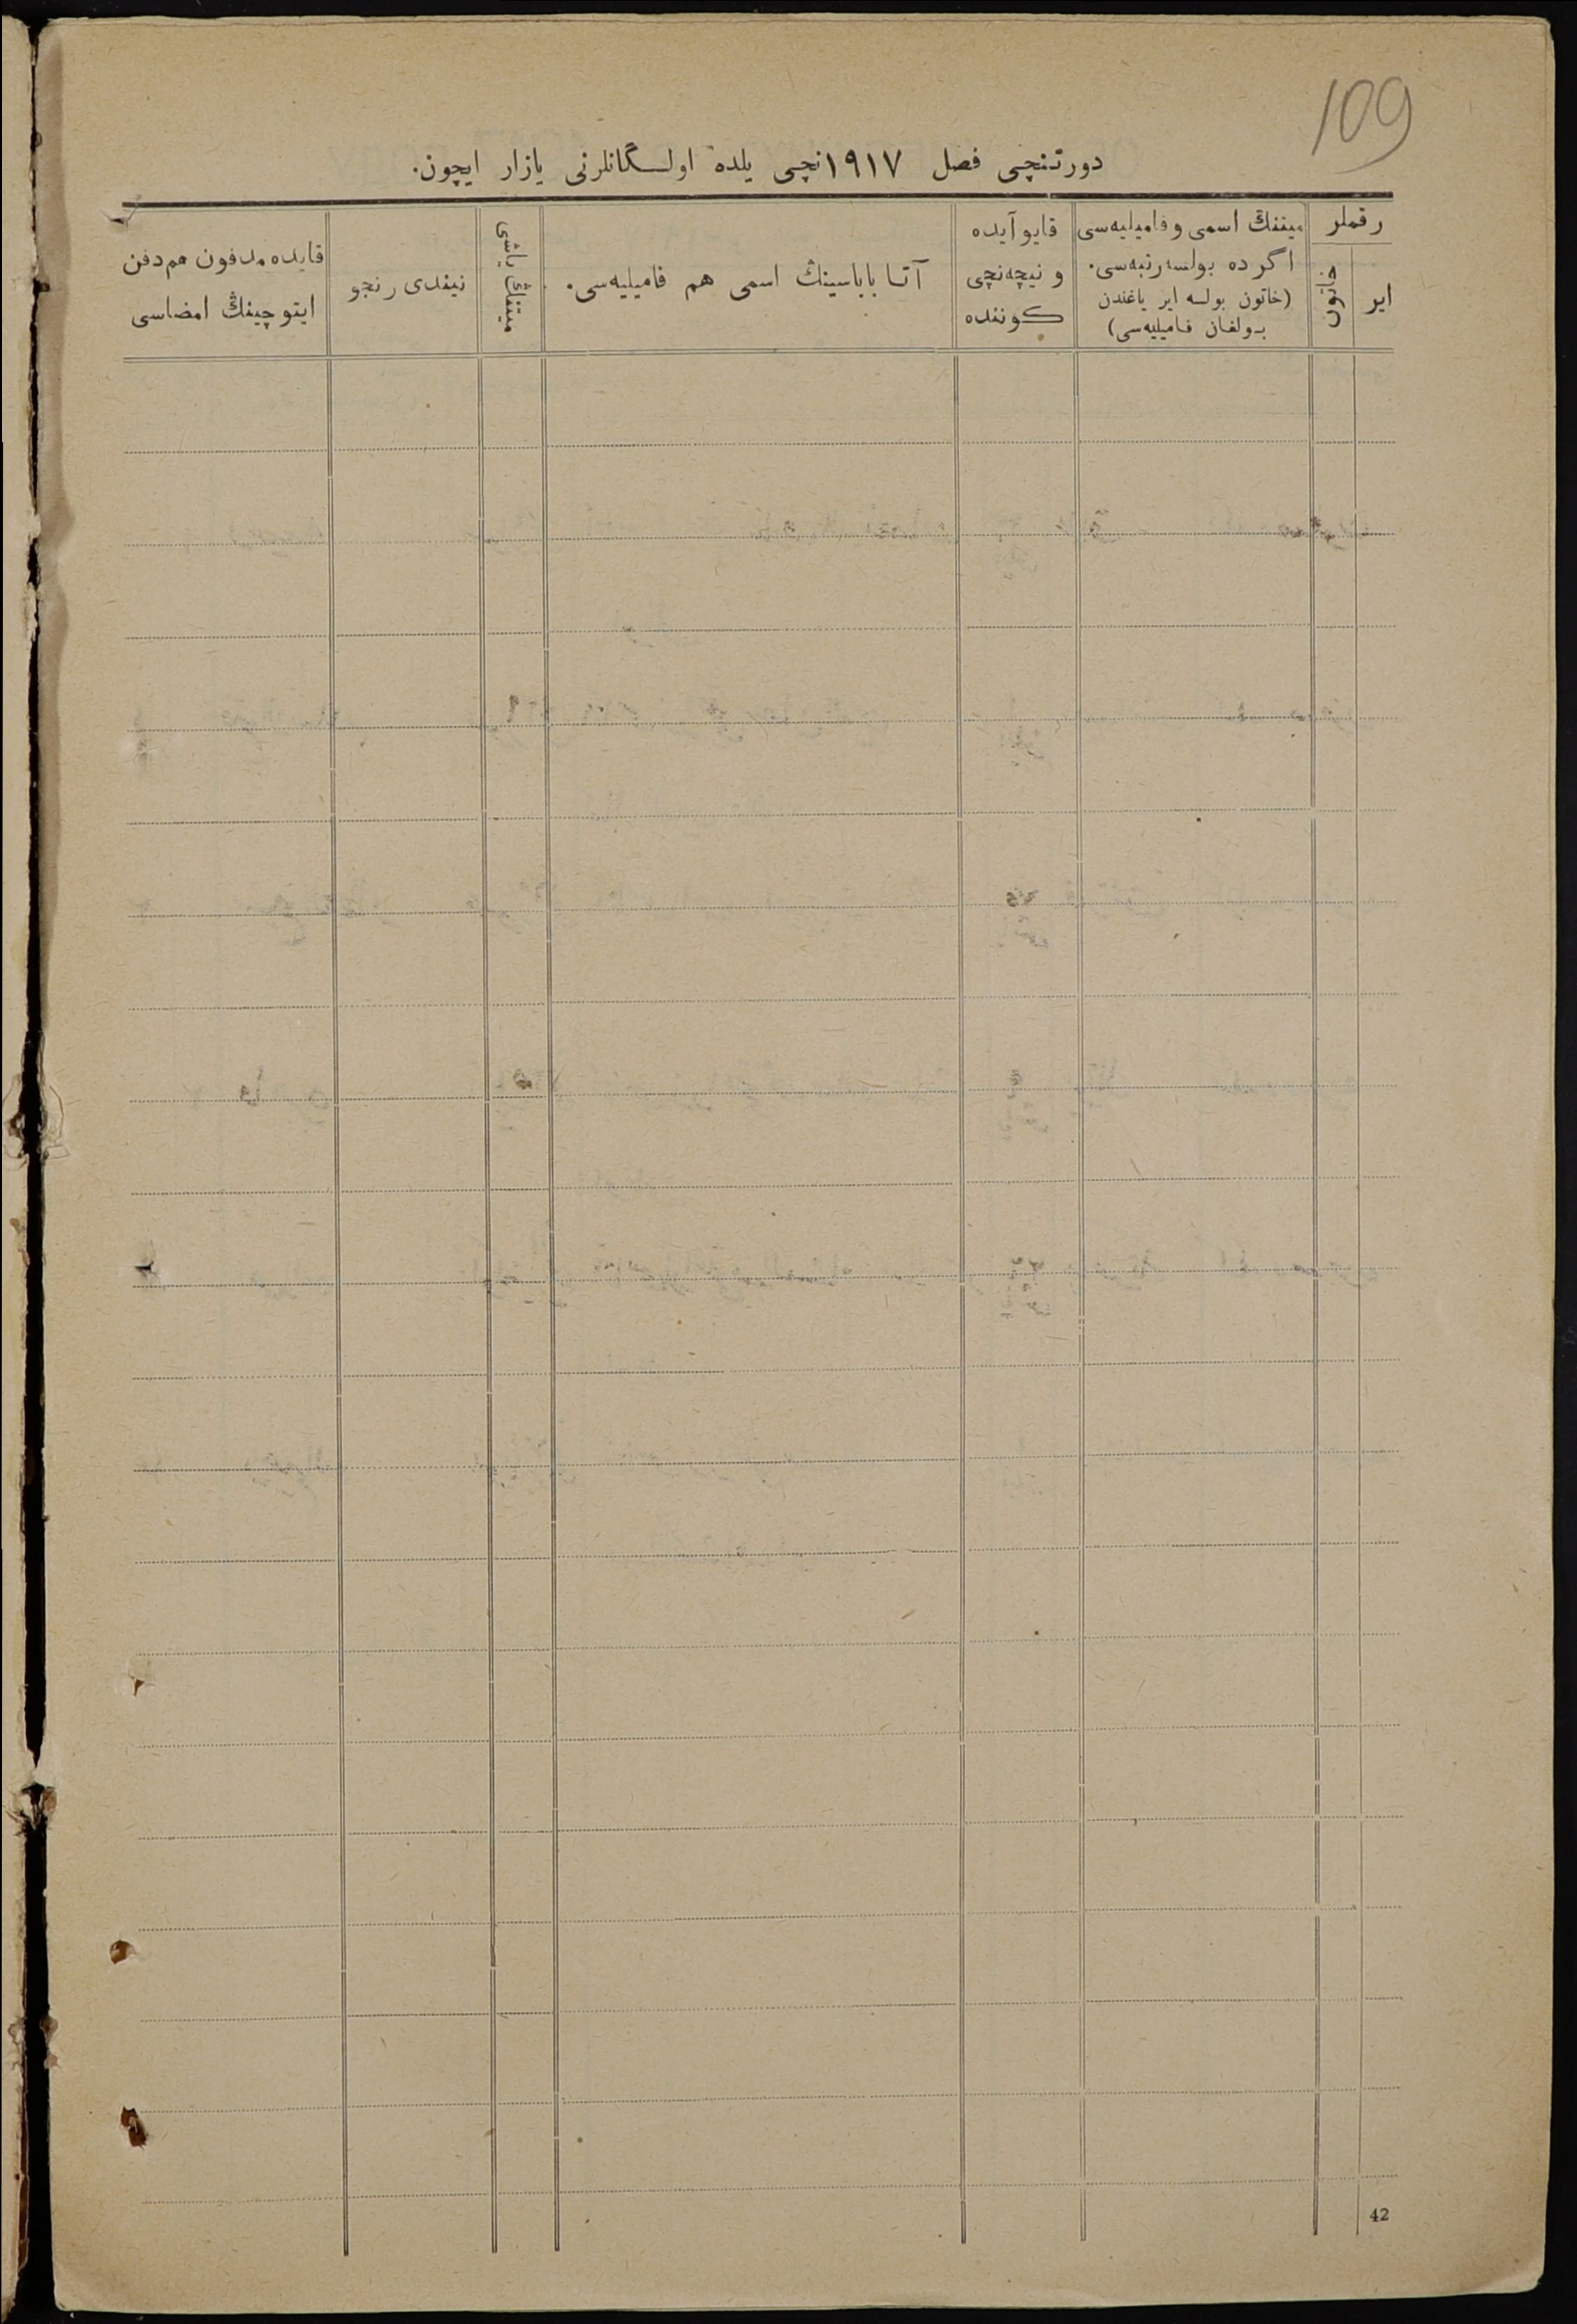 109
دورتنچی فصل ١٩١٧نچی یلده اولـسگانلرنی یازار ایچون.
رقملر
ایر
خاتون
میتنڭ اسمی و فامیلیه‌سی
اگر ده بولسه رتبه‌سی.
(خاتون بولسه ایر یاغندن
بولغان فامیلیه‌سی)
قایو آیده
و نیچه‌نچی
کوننده
آتا باباسینڭ اسمی هم فامیلیه‌سی.
میتنڭ یاشی
نیندی رنجو
قایده مدفون هم دفن
ایتوچینڭ امضاسی
42